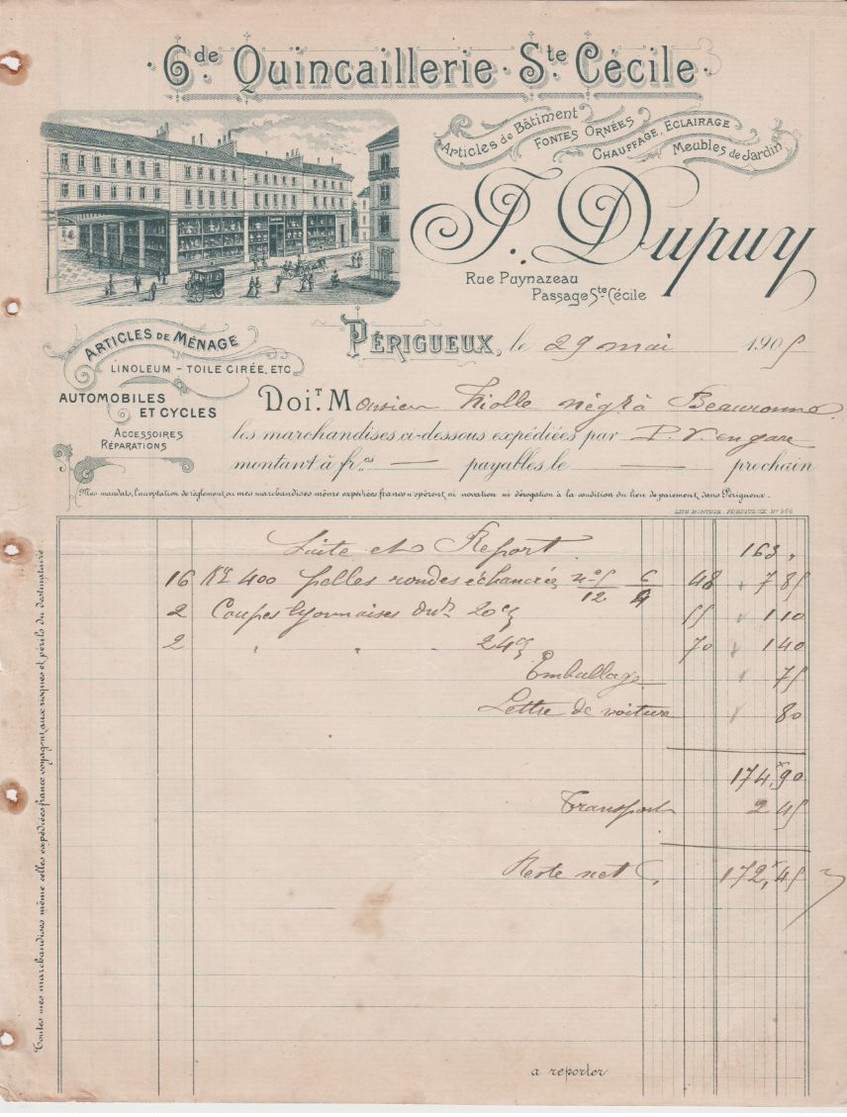 Gde Quincaillerie Ste Cécile
Articles de Bâtiment
Fontes Ornées
Chauffage, Eclairage
Meubles de Jardin
J. Dupuy
Rue Puynazeau
Passage Ste Cécile
Articles de Ménage
Linoleum - Toile Cirée, etc
Automobiles
et Cycles
Accessoires
Réparations
Périgueux, le 29 mai 1905
Doit. Monsieur négt à Beauronne
les marchandises ci-dessous expédiées par P.V. en gare
montant à frs — payables le — prochain
Mes mandats, l'acceptation de règlement, ou mes marchandises même expédiées franco n'opèrent, ni novation ni dérogation à la condition du lieu de paiement, dans Périgueux.
Suite et Report 163,
16 400 pelles rondes échancrées nos 5/12 6/4 48 7 85
2 Coupes lyonnaises 20 55 1 10
2 " " 24 70 1 40
Emballage 75
Lettre de voiture 80
174,90
Transport 2 45
Reste net 172,45
a reporter
Toutes mes marchandises même celles expédiées franco voyagent aux risques et périls du destinataire